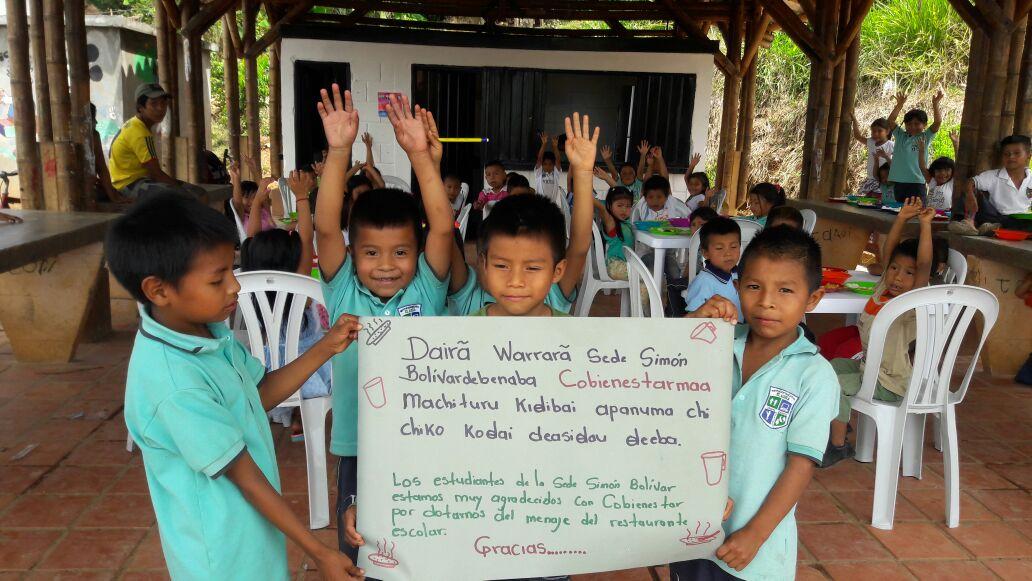 Dairã Warrarã Sede Simón
Bolívardebenaba Cobienestarmaa
Machituru kidibai apanuma chi
chiko kodai deasidau deeba.
Los estudiantes de la Sede Simón Bolívar
estamos muy agradecidos con Cobienestar
por dotarnos del menaje del restaurante
escolar.
Gracias.........